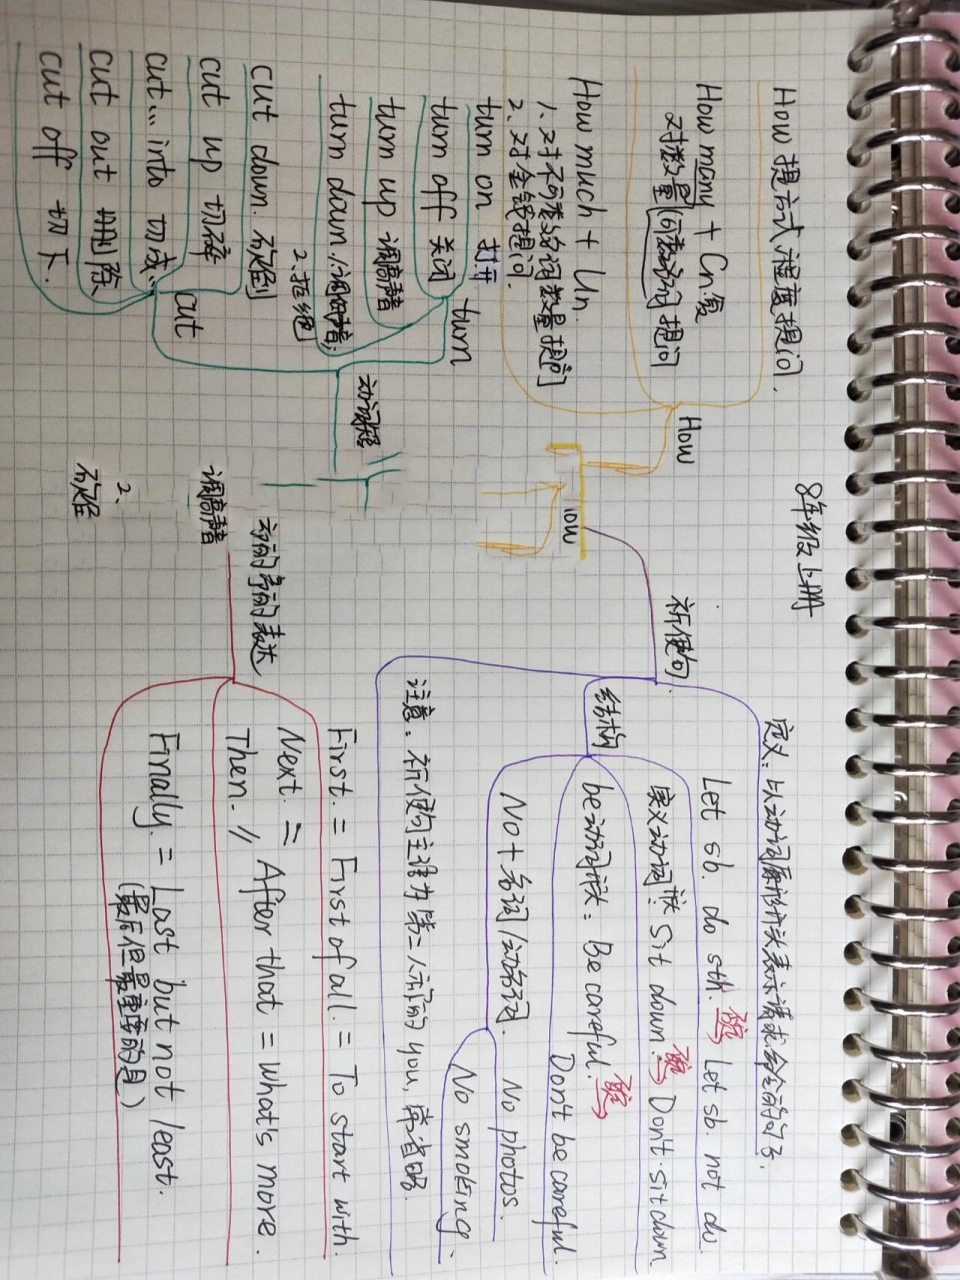 8年级上册
How 提方式 程度提问.
How many + Cn复
对数量(问数字)提问
How much + Un.
1. 对不可数名词数量提问
2. 对金钱提问.
How
turn on 打开
turn off 关闭
turn up 调高声音
turn down 1.调低声音;
2.拒绝
turn
cut down. 砍倒
cut up 切碎
cut... into 切成...
cut out 删除
cut off 切下
cut
动词短
祈使句.
定义: 以动词原形开头表示请求命令的句子.
结构
Let sb. do sth. 否 Let sb. not do
实义动词 Sit down. 否 Don't sit down.
be动词 : Be careful. 否
Don't be careful.
No + 名词/动名词. No photos.
No smoking.
注意: 祈使句主语为第二人称的you, 常省略.
调高声音
2.
砍倒
First. = First of all. = To start with.
Next. =
Then. // After that = what's more.
Finally. = Last but not least.
(最后但最重要的是)